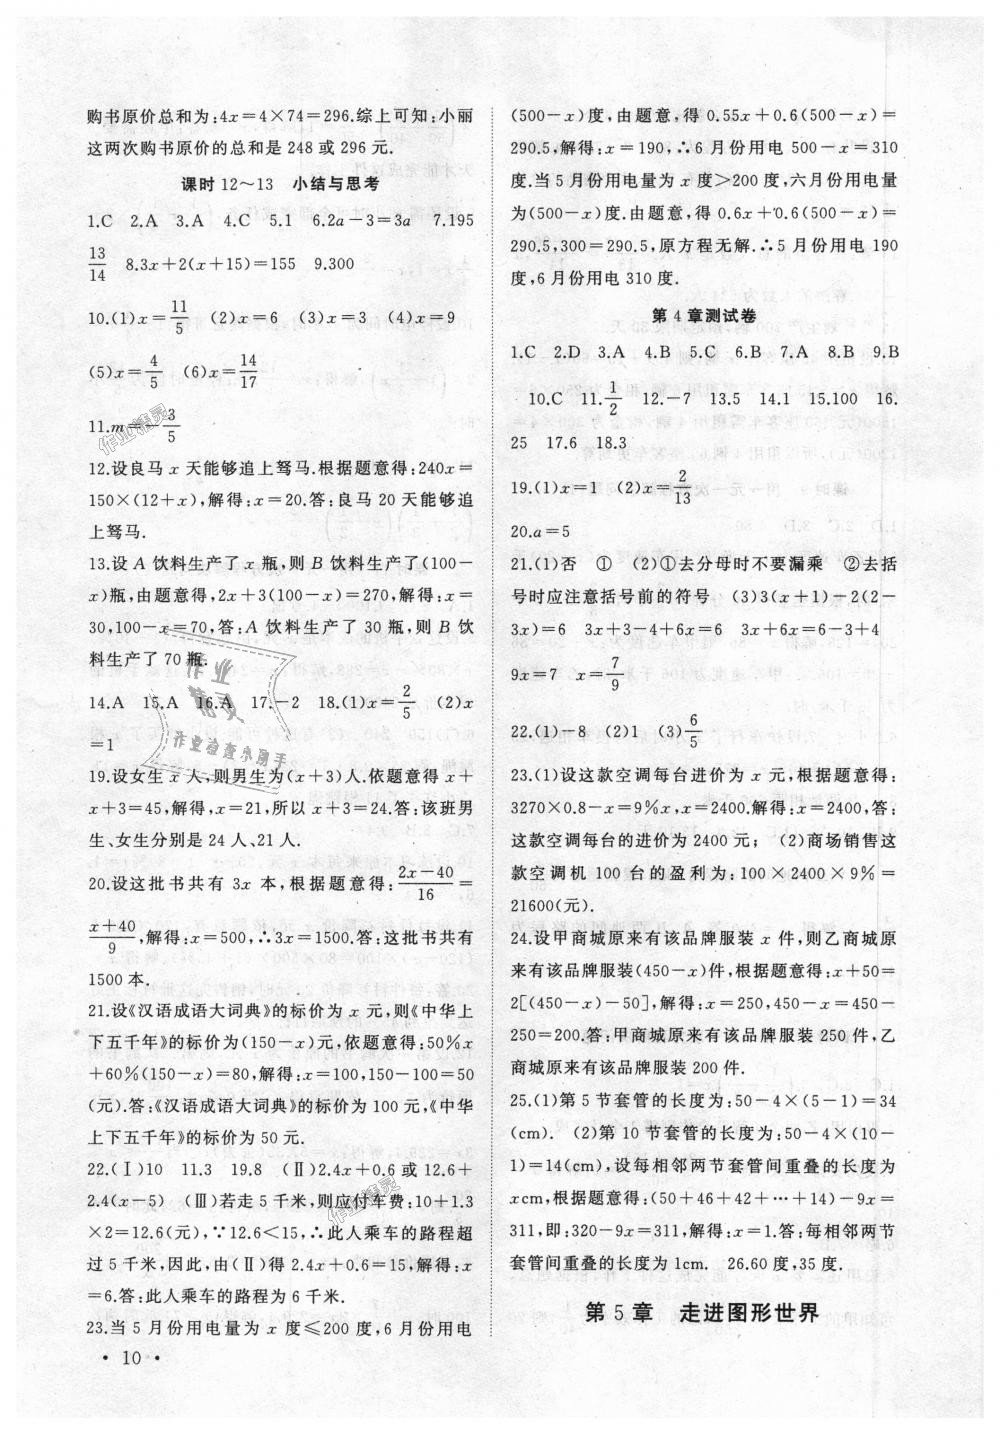 购书原价总和为:4x=4×74=296.综上可知:小丽
这两次购书原价的总和是 248 或 296 元.
课时 12～13　小结与思考
1.C　2.A　3.A　4.C　5.1　6.2a－3=3a　7.195
13/14　8.3x+2(x+15)=155　9.300
10.(1)x=11/5　(2)x=6　(3)x=－3　(4)x=9
(5)x=4/5　(6)x=14/17
11.m=－3/5
12.设良马 x 天能够追上驽马.根据题意得:240x=
150×(12+x),解得:x=20.答:良马 20 天能够追
上驽马.
13.设 A 饮料生产了 x 瓶,则 B 饮料生产了(100－
x)瓶,由题意得,2x+3(100－x)=270,解得:x=
30,100－x=70,答:A 饮料生产了 30 瓶,则 B 饮
料生产了 70 瓶.
14.A　15.A　16.A　17.－2　18.(1)x=2/5　(2)x
=1
19.设女生 x 人,则男生为(x+3)人.依题意得 x+
x+3=45,解得,x=21,所以 x+3=24.答:该班男
生、女生分别是 24 人、21 人.
20.设这批书共有 3x 本,根据题意得:(2x－40)/16=
(x+40)/9,解得:x=500,∴3x=1500.答:这批书共有
1500 本.
21.设《汉语成语大词典》的标价为 x 元,则《中华上
下五千年》的标价为(150－x)元,依题意得:50%x
+60%(150－x)=80,解得:x=100,150－100=50
(元).答:《汉语成语大词典》的标价为 100 元,《中华
上下五千年》的标价为 50 元.
22.(Ⅰ)10　11.3　19.8　(Ⅱ)2.4x+0.6或 12.6+
2.4(x－5)　(Ⅲ)若走 5 千米,则应付车费:10+1.3
×2=12.6(元),∵12.6<15,∴此人乘车的路程超
过 5 千米,因此,由(Ⅱ)得 2.4x+0.6=15,解得:x
=6.答:此人乘车的路程为 6 千米.
23.当 5 月份用电量为 x 度≤200 度,6 月份用电
(500－x)度,由题意,得 0.55x+0.6(500－x)=
290.5,解得:x=190,∴6 月份用电 500－x=310
度.当 5 月份用电量为 x 度>200 度,六月份用电量
为(500－x)度.由题意,得 0.6x+0.6(500－x)=
290.5,300=290.5,原方程无解.∴5 月份用电 190
度,6 月份用电 310 度.
第 4 章测试卷
1.C　2.D　3.A　4.B　5.C　6.B　7.A　8.B　9.B
10.C　11.1/2　12.－7　13.5　14.1　15.100　16.
25　17.6　18.3
19.(1)x=1　(2)x=2/13
20.a=5
21.(1)否　①　(2)①去分母时不要漏乘　②去括
号时应注意括号前的符号　(3)3(x+1)－2(2－
3x)=6　3x+3－4+6x=6　3x+6x=6－3+4
9x=7　x=7/9
22.(1)－8　(2)1　(3)6/5
23.(1)设这款空调每台进价为 x 元,根据题意得:
3270×0.8－x=9%x,x=2400.解得:x=2400,答:
这款空调每台的进价为 2400 元;　(2)商场销售这
款空调机 100 台的盈利为:100×2400×9%=
21600(元).
24.设甲商城原来有该品牌服装 x 件,则乙商城原
来有该品牌服装(450－x)件,根据题意得:x+50=
2[(450－x)－50],解得:x=250,450－x=450－
250=200.答:甲商城原来有该品牌服装 250 件,乙
商城原来有该品牌服装 200 件.
25.(1)第 5 节套管的长度为:50－4×(5－1)=34
(cm).　(2)第 10 节套管的长度为:50－4×(10－
1)=14(cm),设每相邻两节套管间重叠的长度为
xcm,根据题意得:(50+46+42+…+14)－9x=
311,即:320－9x=311,解得:x=1.答:每相邻两节
套管间重叠的长度为 1cm.　26.60 度,35 度
第 5 章　走进图形世界
· 10 ·
作业精灵
作业
精灵
作业检查小助手
作业精灵